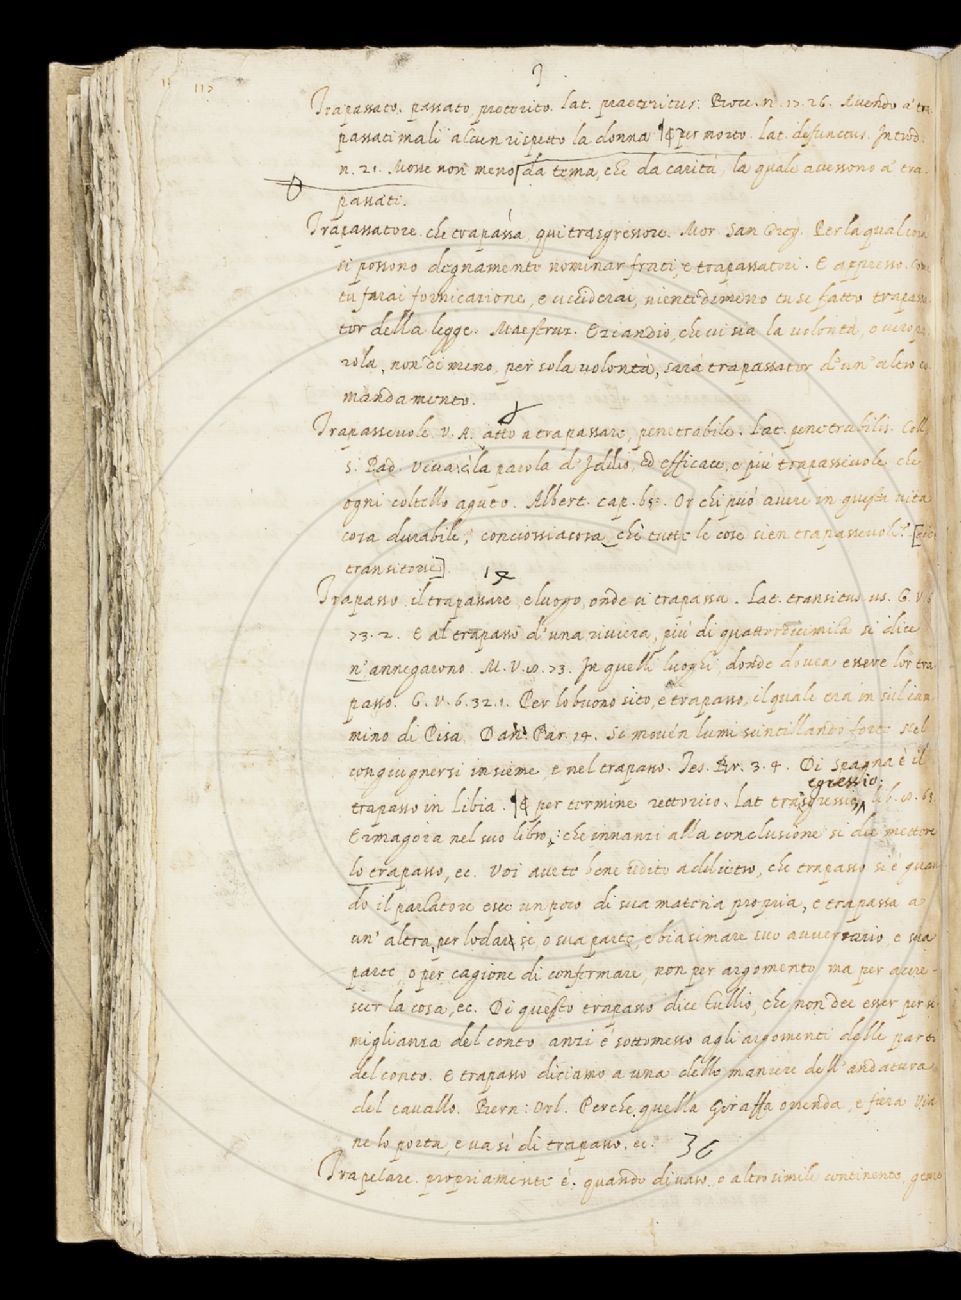 117
Trapassato. passato, preterito. Lat. praeteritus. Bocc. n. 17. 26. Avendo a' tra
passati mali alcun rispetto la donna per morto. Lat. defunctus. Introd.
n. 21. Mosse non meno da tema, che da carità, la quale avessono a' tra-
passati.
Trapassatore. che trapassa, qui trasgressore. Mor. San Greg. Per la qual cosa
si possono degnamente nominar frati, e trapassatori. E appresso. Come
tu farai fornicazione, e ucciderai, nientedimeno tu se' fatto trapassa
tor della legge. Maestruz. Eziandio, che vi sia la volontà, o vero pa
rola, nondimeno, per sola volontà, sarà trapassator d'un' altro co
mandamento.
Trapassevole. V. A. atto a trapassare, penetrabile. Lat. penetrabilis. Coll.
S. Pad. Viva è la parola d' Iddio, ed efficace, e più trapassevole che
ogni coltello aguto. Albert. cap. 65. Or chi può avere in questa vita
cosa durabile, conciossiacosa, che tutte le cose sien trapassevoli? [cioè
transitorie]
Trapasso. il trapassare, e luogo, onde si trapassa. Lat. transitus us. G. V. 6
73. 2. E al trapasso d'una riviera, più di quattordicimila si dice
n'annegarono. M. V. 9. 73. In quelli luoghi, donde dovea essere lor tra
passo. G. V. 6. 32. 1. Per lo buono sito, e trapasso, il quale era in sul cam
mino di Pisa. Dan. Par. 14. Si movén lumi scintillando forte Nel
congiugnersi insieme e nel trapasso. Tes. Br. 3. 4. Di Spagna è il
egressio.
trapasso in Libia. per termine rettorico. Lat. trasgressio, lib. 8. 63
Ermagora nel suo libro, : che innanzi alla conclusione si dee mettere
lo trapasso, ec. Voi avete bene udito addietro, che trapasso si è quan
do il parlatore esce un poco di sua materia propria, e trapassa a
un' altra, per lodar se, o sua parte, e biasimare suo avversario e sua
parte, o per cagione di confermare, non per argomento, ma per acre-
scer la cosa, ec. Di questo trapasso dice Tullio, che non dee esser per si
miglianza del conto anzi è sottomesso agli argomenti delle parti
del conto. E trapasso diciamo a una delle maniere dell' andatura
del cavallo. Bern: Orl. Perche quella Giraffa orrenda, e fiera Via
ne lo porta, e va sì di trapasso. ec. 36
Trapelare. propriamente è. quando di vaso, o altro simile continente, geme